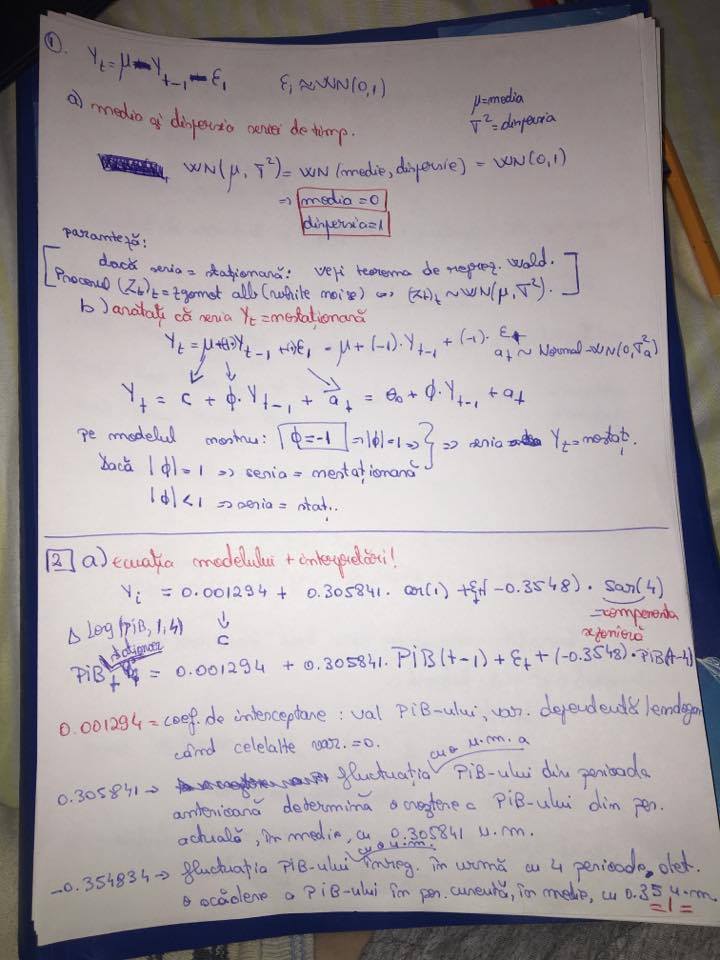 1. Y_t = μ - Y_{t-1} - ε_1   ε_1 ≈ WN(0,1)
μ = media
a) media și dispersia seriei de timp.
∇² = dispersia
WN(μ, ∇²) = WN(medie, dispersie) = WN(0,1)
=> media = 0
dispersia = 1
paranteză:
dacă seria = staționară: vezi teorema de reprez. Wald.
Procesul (Z_t)_t = zgomot alb (white noise) <=> (Z_t)_t ~ WN(μ, ∇²).
b) arătați că seria Y_t = nestaționară
Y_t = μ+(-1)Y_{t-1} +(-1)ε_1 = μ + (-1)·Y_{t-1} + (-1)·ε_t
a_t ~ Normal - WN(0, ∇²_a)
Y_t = c + φ·Y_{t-1} + a_t = θ_0 + φ·Y_{t-1} + a_t
pe modelul nostru: φ = -1 => |φ| = 1 => } => seria Y_t = nestaț.
Dacă |φ| = 1 => seria = nestaționară
|φ| < 1 => seria = staț..
2 a) ecuația modelului + interpretări!
Y_i = 0.001294 + 0.305841 · ar(1) + ε_t + (-0.3548) · sar(4)
= componenta
sezonieră
Δ log(PiB,1,4) c
staționar
PiB_t = 0.001294 + 0.305841 · PiB(t-1) + ε_t + (-0.3548) · PiB(t-4)
0.001294 = coef. de interceptare : val PiB-ului, var. dependentă/endogen
când celelalte var. = 0.
cu o u.m. a
0.305841 → fluctuația PiB-ului din perioada
anterioară determină o creștere a PiB-ului din per.
actuală, în medie, cu 0.305841 u.m.
cu o u.m.
-0.354834 → fluctuația PiB-ului înreg. în urmă cu 4 perioade, det.
o scădere a PiB-ului în per. curentă, în medie, cu 0.354 u.m.
=1=